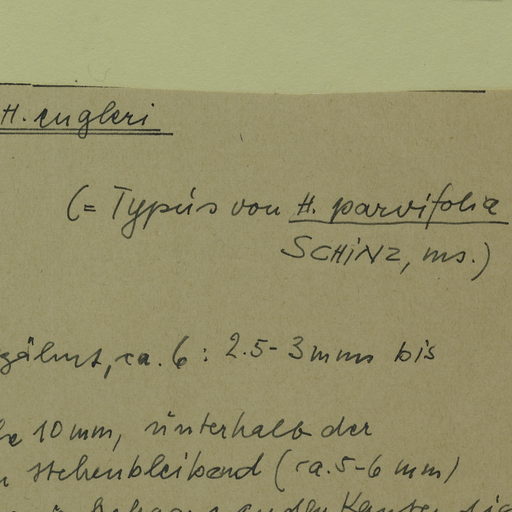 H. engleri
(= Typus von H. parvifolia
SCHINZ, ms.)
gzähnt, ca. 6 : 2.5-3mm bis
10mm, unterhalb der
stehenbleibend (ca. 5-6 mm)